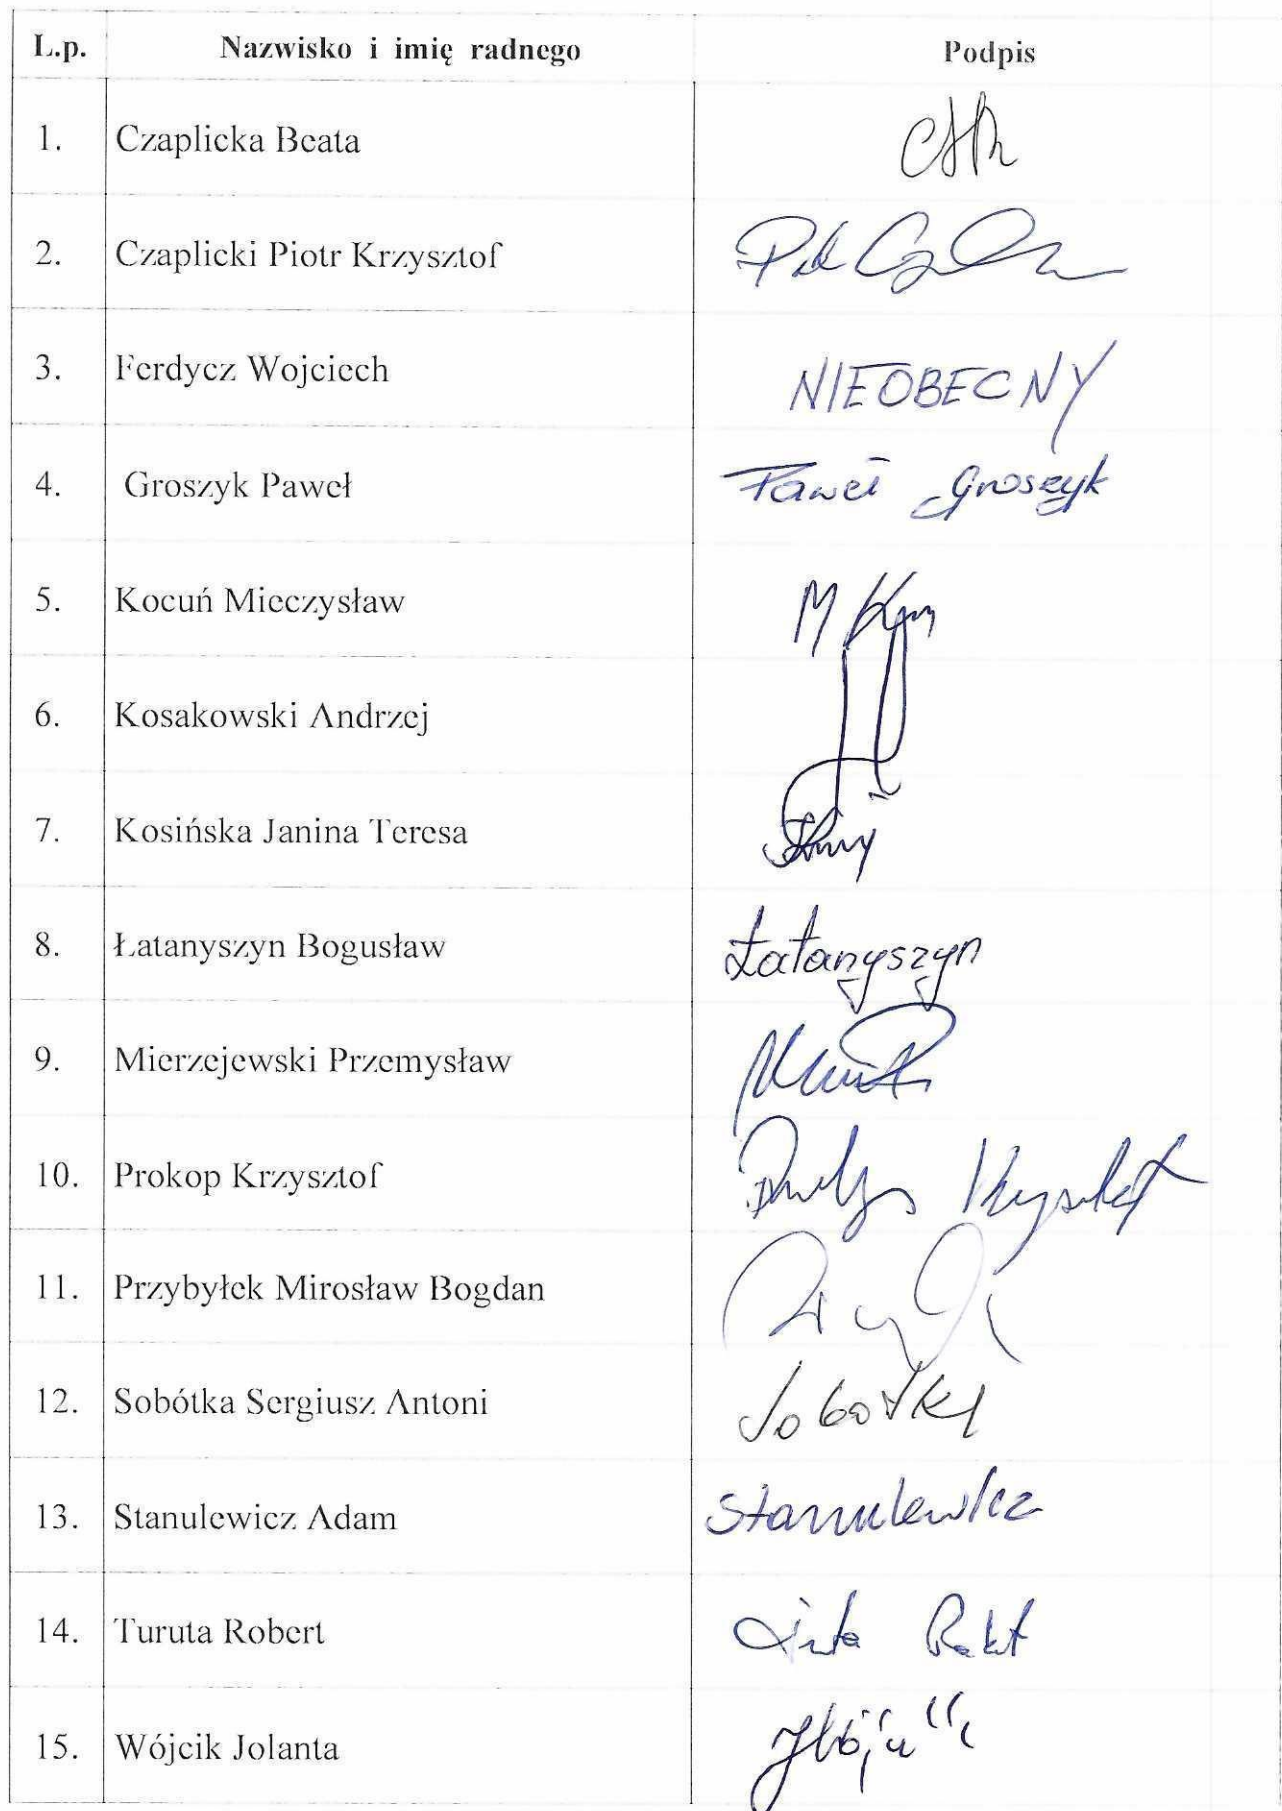 L.p. Nazwisko i imię radnego Podpis
1. Czaplicka Beata
2. Czaplicki Piotr Krzysztof
3. Ferdycz Wojciech NIEOBECNY
4. Groszyk Paweł Paweł Groszyk
5. Kocuń Mieczysław
6. Kosakowski Andrzej
7. Kosińska Janina Teresa
8. Łatanyszyn Bogusław Łatanyszyn
9. Mierzejewski Przemysław
10. Prokop Krzysztof
11. Przybyłek Mirosław Bogdan
12. Sobótka Sergiusz Antoni Sobótka
13. Stanulewicz Adam Stanulewicz
14. Turuta Robert
15. Wójcik Jolanta